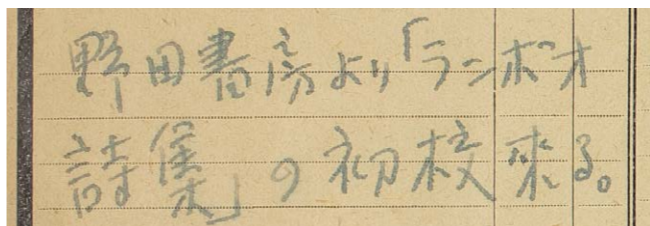 野田書房より「ランボオ
詩集」の初校来る。